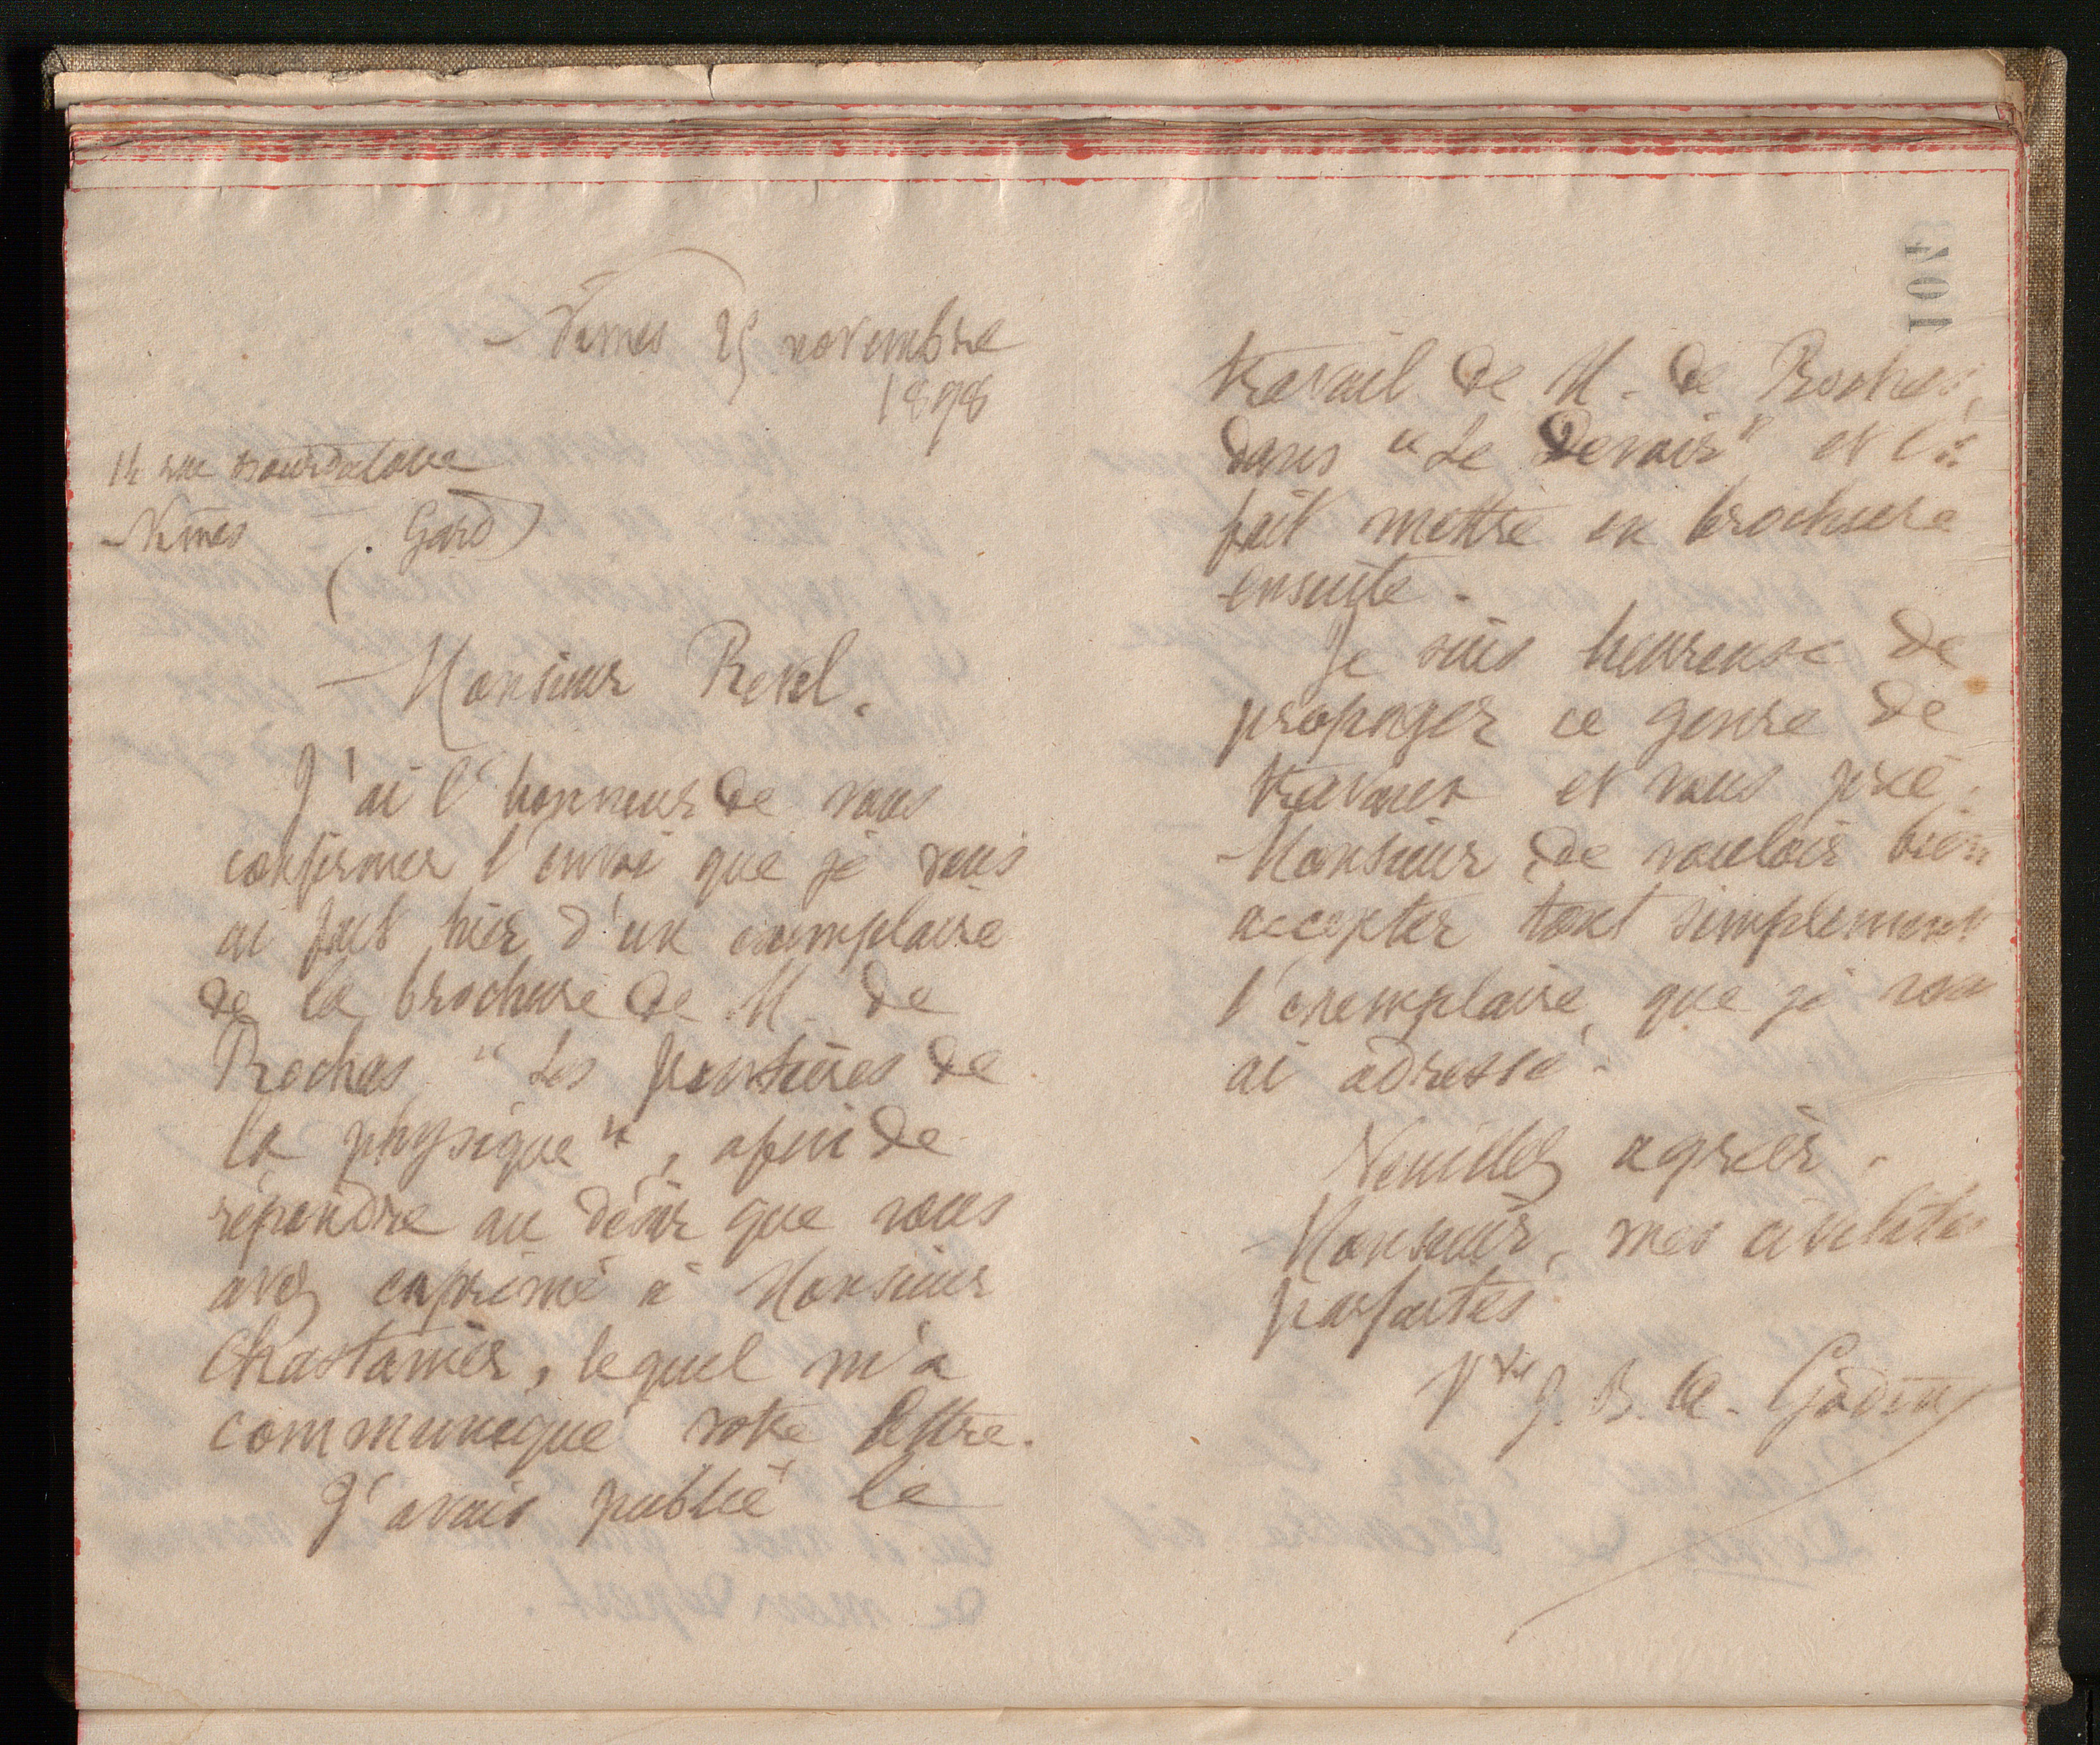 Nîmes 25 novembre
1898
14 rue Bourdaloue
Nîmes (Gard)
Monsieur Revel.
J'ai l'honneur de vous
confirmer l'envoi que je vous
ai fait hier d'un exemplaire
de la brochure de M. de
Rochas "Les frontières de
la physique", afin de
répondre au désir que vous
avez exprimé à Monsieur
Chastanier, lequel m'a
communiqué votre lettre.
J'avais publié le
102
travail de M. de Rochas,
dans "Le Devoir" et l'ai
fait mettre en brochure
ensuite.
Je suis heureuse de
propager ce genre de
travaux et vous prie,
Monsieur, de vouloir bien
accepter tout simplement
l'exemplaire que je vous
ai adressé.
Veuillez agréer,
Monsieur, mes civilités
parfaites.
Vve J. B. A. Godin